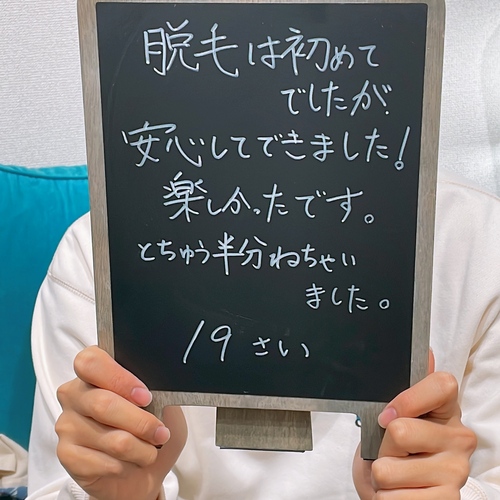 脱毛は初めて
でしたが、
安心してできました!
楽しかったです。
とちゅう半分ねちゃい
ました。
19さい